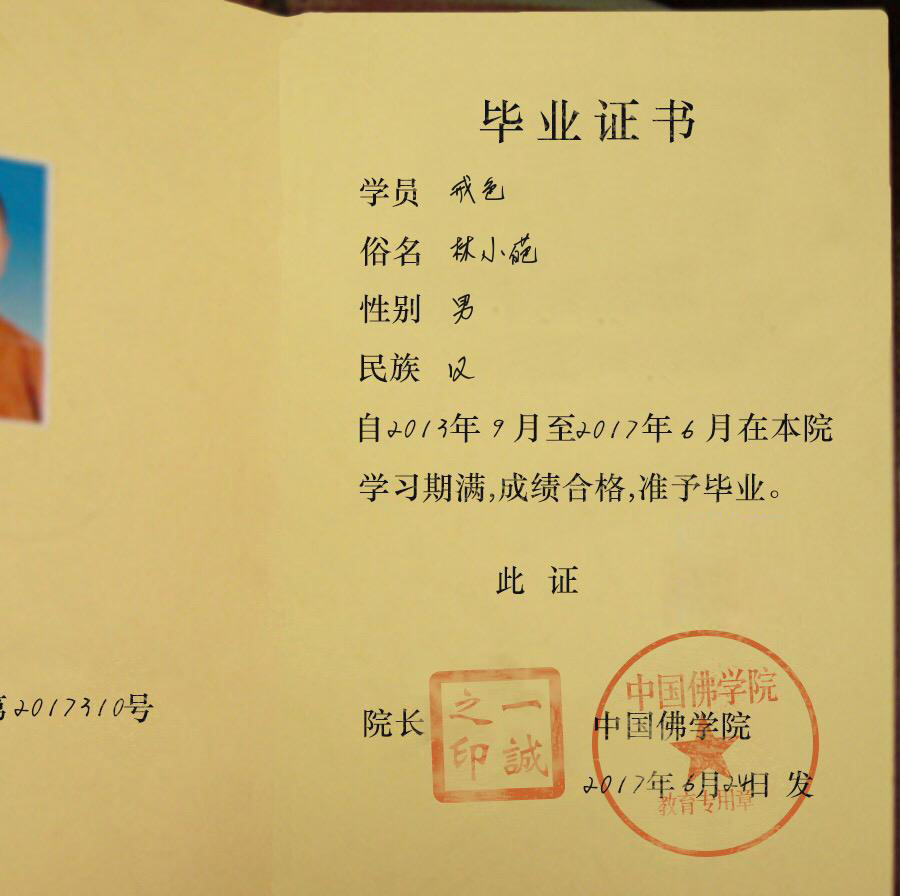 毕业证书
学员 戒色
俗名 林小葩
性别 男
民族 汉
自2013年9月至2017年6月在本院
学习期满,成绩合格,准予毕业。
此证
第2017310号
院长
一誠之印
中国佛学院
中国佛学院
2017年6月24日 发
教育专用章